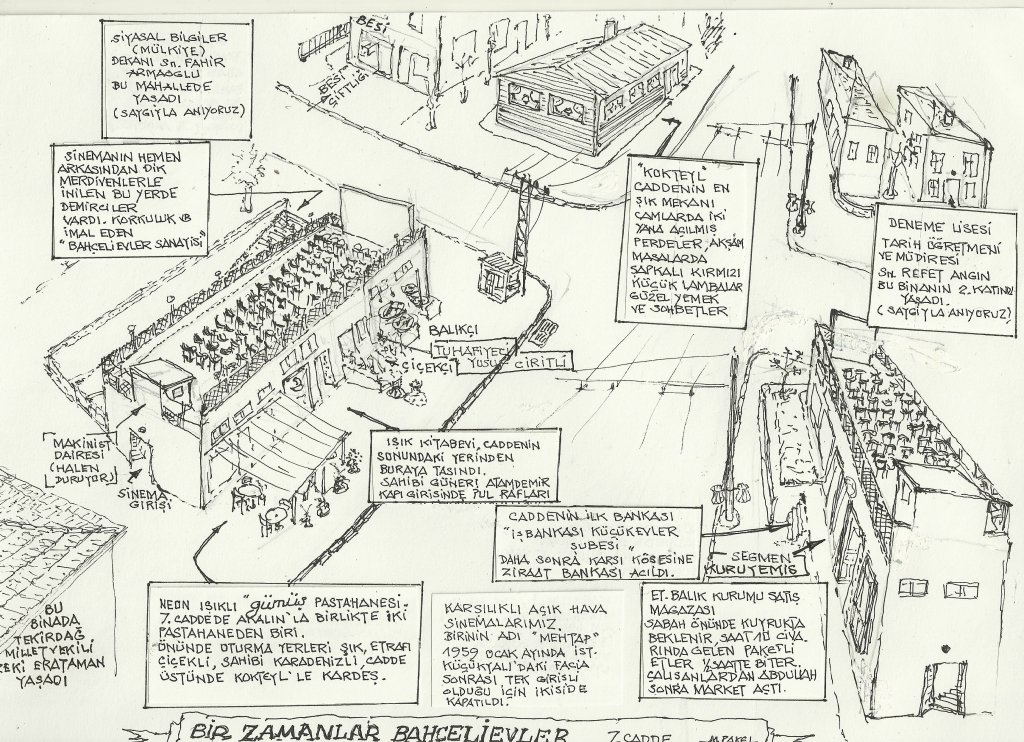 SİYASAL BİLGİLER
(MÜLKİYE)
DEKANI Sn. FAHİR
ARMAOĞLU
BU MAHALLEDE
YAŞADI
(SAYGIYLA ANIYORUZ)
BESİ
BESİ
ÇİFTLİĞİ
SİNEMANIN HEMEN
ARKASINDAN DİK
MERDİVENLERLE
İNİLEN BU YERDE
DEMİRCİLER
VARDI. KORKULUK VB
İMAL EDEN
"BAHÇELİEVLER SANAYİSİ"
"KOKTEYL"
CADDENİN EN
ŞIK MEKANI
CAMLARDA İKİ
YANA AÇILMIŞ
PERDELER, AKŞAM
MASALARDA
ŞAPKALI KIRMIZI
KÜÇÜK LAMBALAR
GÜZEL YEMEK
VE SOHBETLER
DENEME LİSESİ
TARİH ÖĞRETMENİ
VE MÜDİRESİ
Sn. REFET ANGIN
BU BİNANIN 2. KATINDA
YAŞADI.
(SAYGIYLA ANIYORUZ)
BALIKÇI
TUHAFİYECİ
YUSUF CİRİTLİ
ÇİÇEKÇİ
MAKİNİST
DAİRESİ
(HALEN
DURUYOR)
SİNEMA
GİRİŞİ
IŞIK KİTABEVİ, CADDENİN
SONUNDAKİ YERİNDEN
BURAYA TAŞINDI.
SAHİBİ GÜNERİ ATAMDEMİR
KAPI GİRİŞİNDE PUL RAFLARI
CADDENİN İLK BANKASI
"İŞ BANKASI KÜÇÜKEVLER
ŞUBESİ"
DAHA SONRA KARŞI KÖŞESİNE
ZİRAAT BANKASI AÇILDI.
SEĞMEN
KURUYEMİŞ
BU
BİNADA
TEKİRDAĞ
MİLLETVEKİLİ
ZEKİ ERATAMAN
YAŞADI
NEON IŞIKLI "gümüş PASTAHANESİ.
7. CADDE'DE AKALIN'LA BİRLİKTE İKİ
PASTAHANEDEN BİRİ.
ÖNÜNDE OTURMA YERLERİ ŞIK, ETRAFI
ÇİÇEKLİ, SAHİBİ KARADENİZLİ, CADDE
ÜSTÜNDE KOKTEYL'LE KARDEŞ.
KARŞILIKLI AÇIK HAVA
SİNEMALARIMIZ.
BİRİNİN ADI "MEHTAP"
1959 OCAK AYINDA İST.
KÜÇÜKYALI'DAKİ FACİA
SONRASI TEK GİRİŞLİ
OLDUĞU İÇİN İKİSİ DE
KAPATILDI.
ET. BALIK KURUMU SATIŞ
MAĞAZASI
SABAH ÖNÜNDE KUYRUKTA
BEKLENİR, SAAT 10 CİVA
RINDA GELEN PAKETLİ
ETLER ½ SAATTE BİTER.
ÇALIŞANLARDAN ABDULLAH
SONRA MARKET AÇTI.
BİR ZAMANLAR BAHÇELİEVLER 7. CADDE